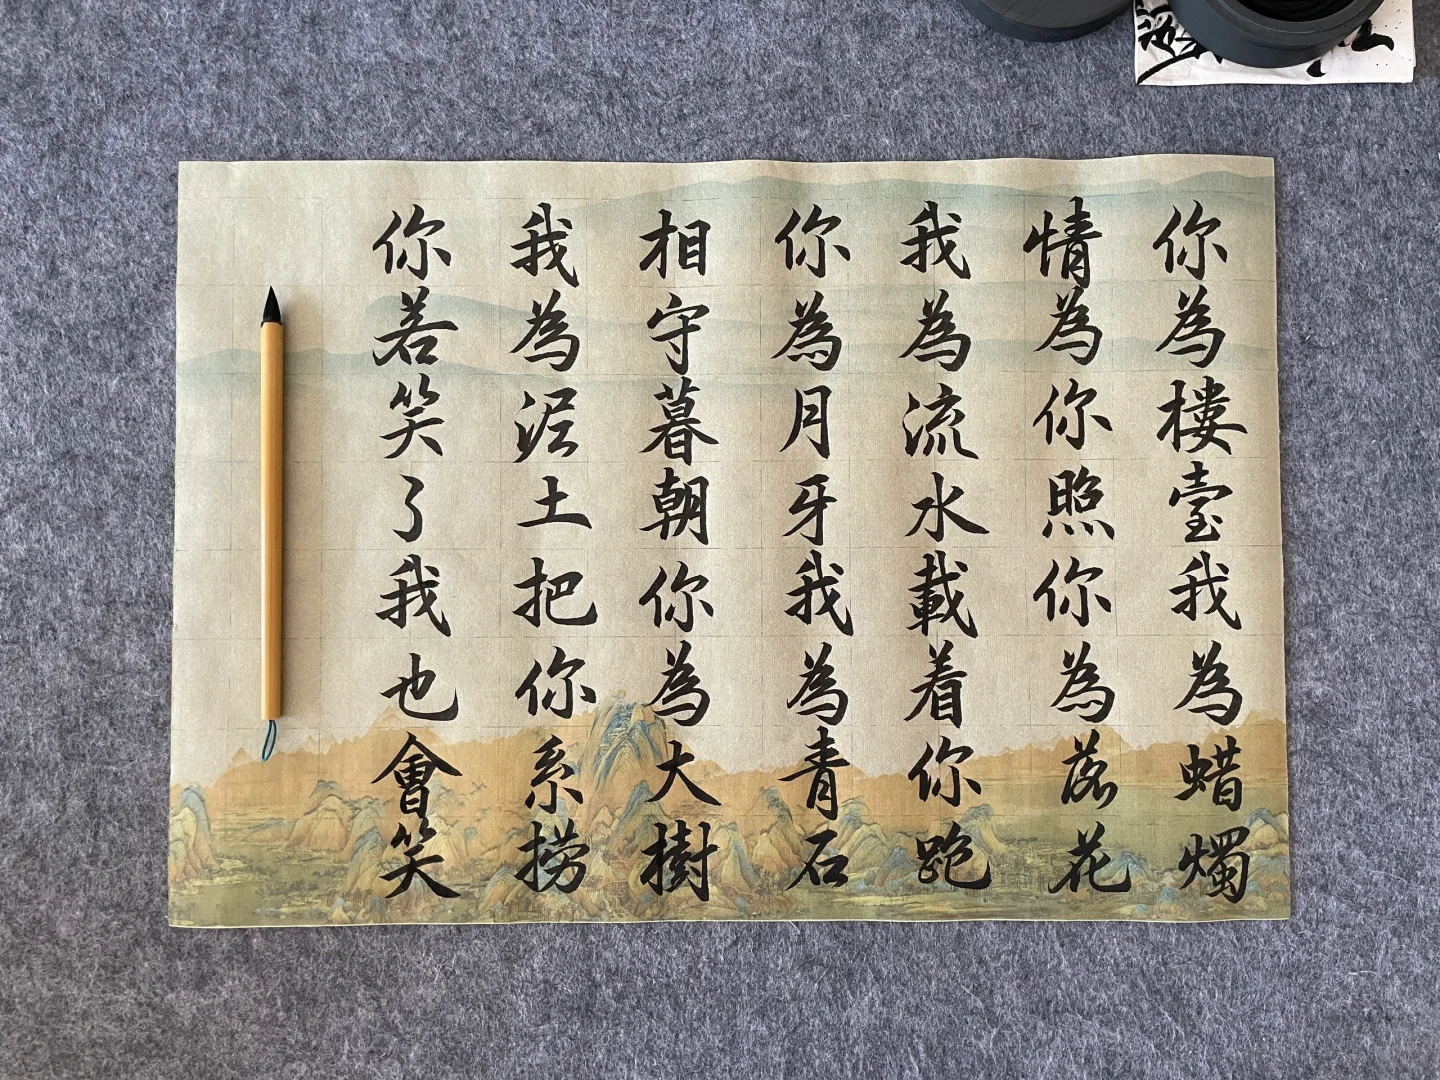 你為樓臺我為蜡燭
情為你照你為落花
我為流水載着你跑
你為月牙我為青石
相守暮朝你為大樹
我為泥土把你系捞
你若笑了我也會笑